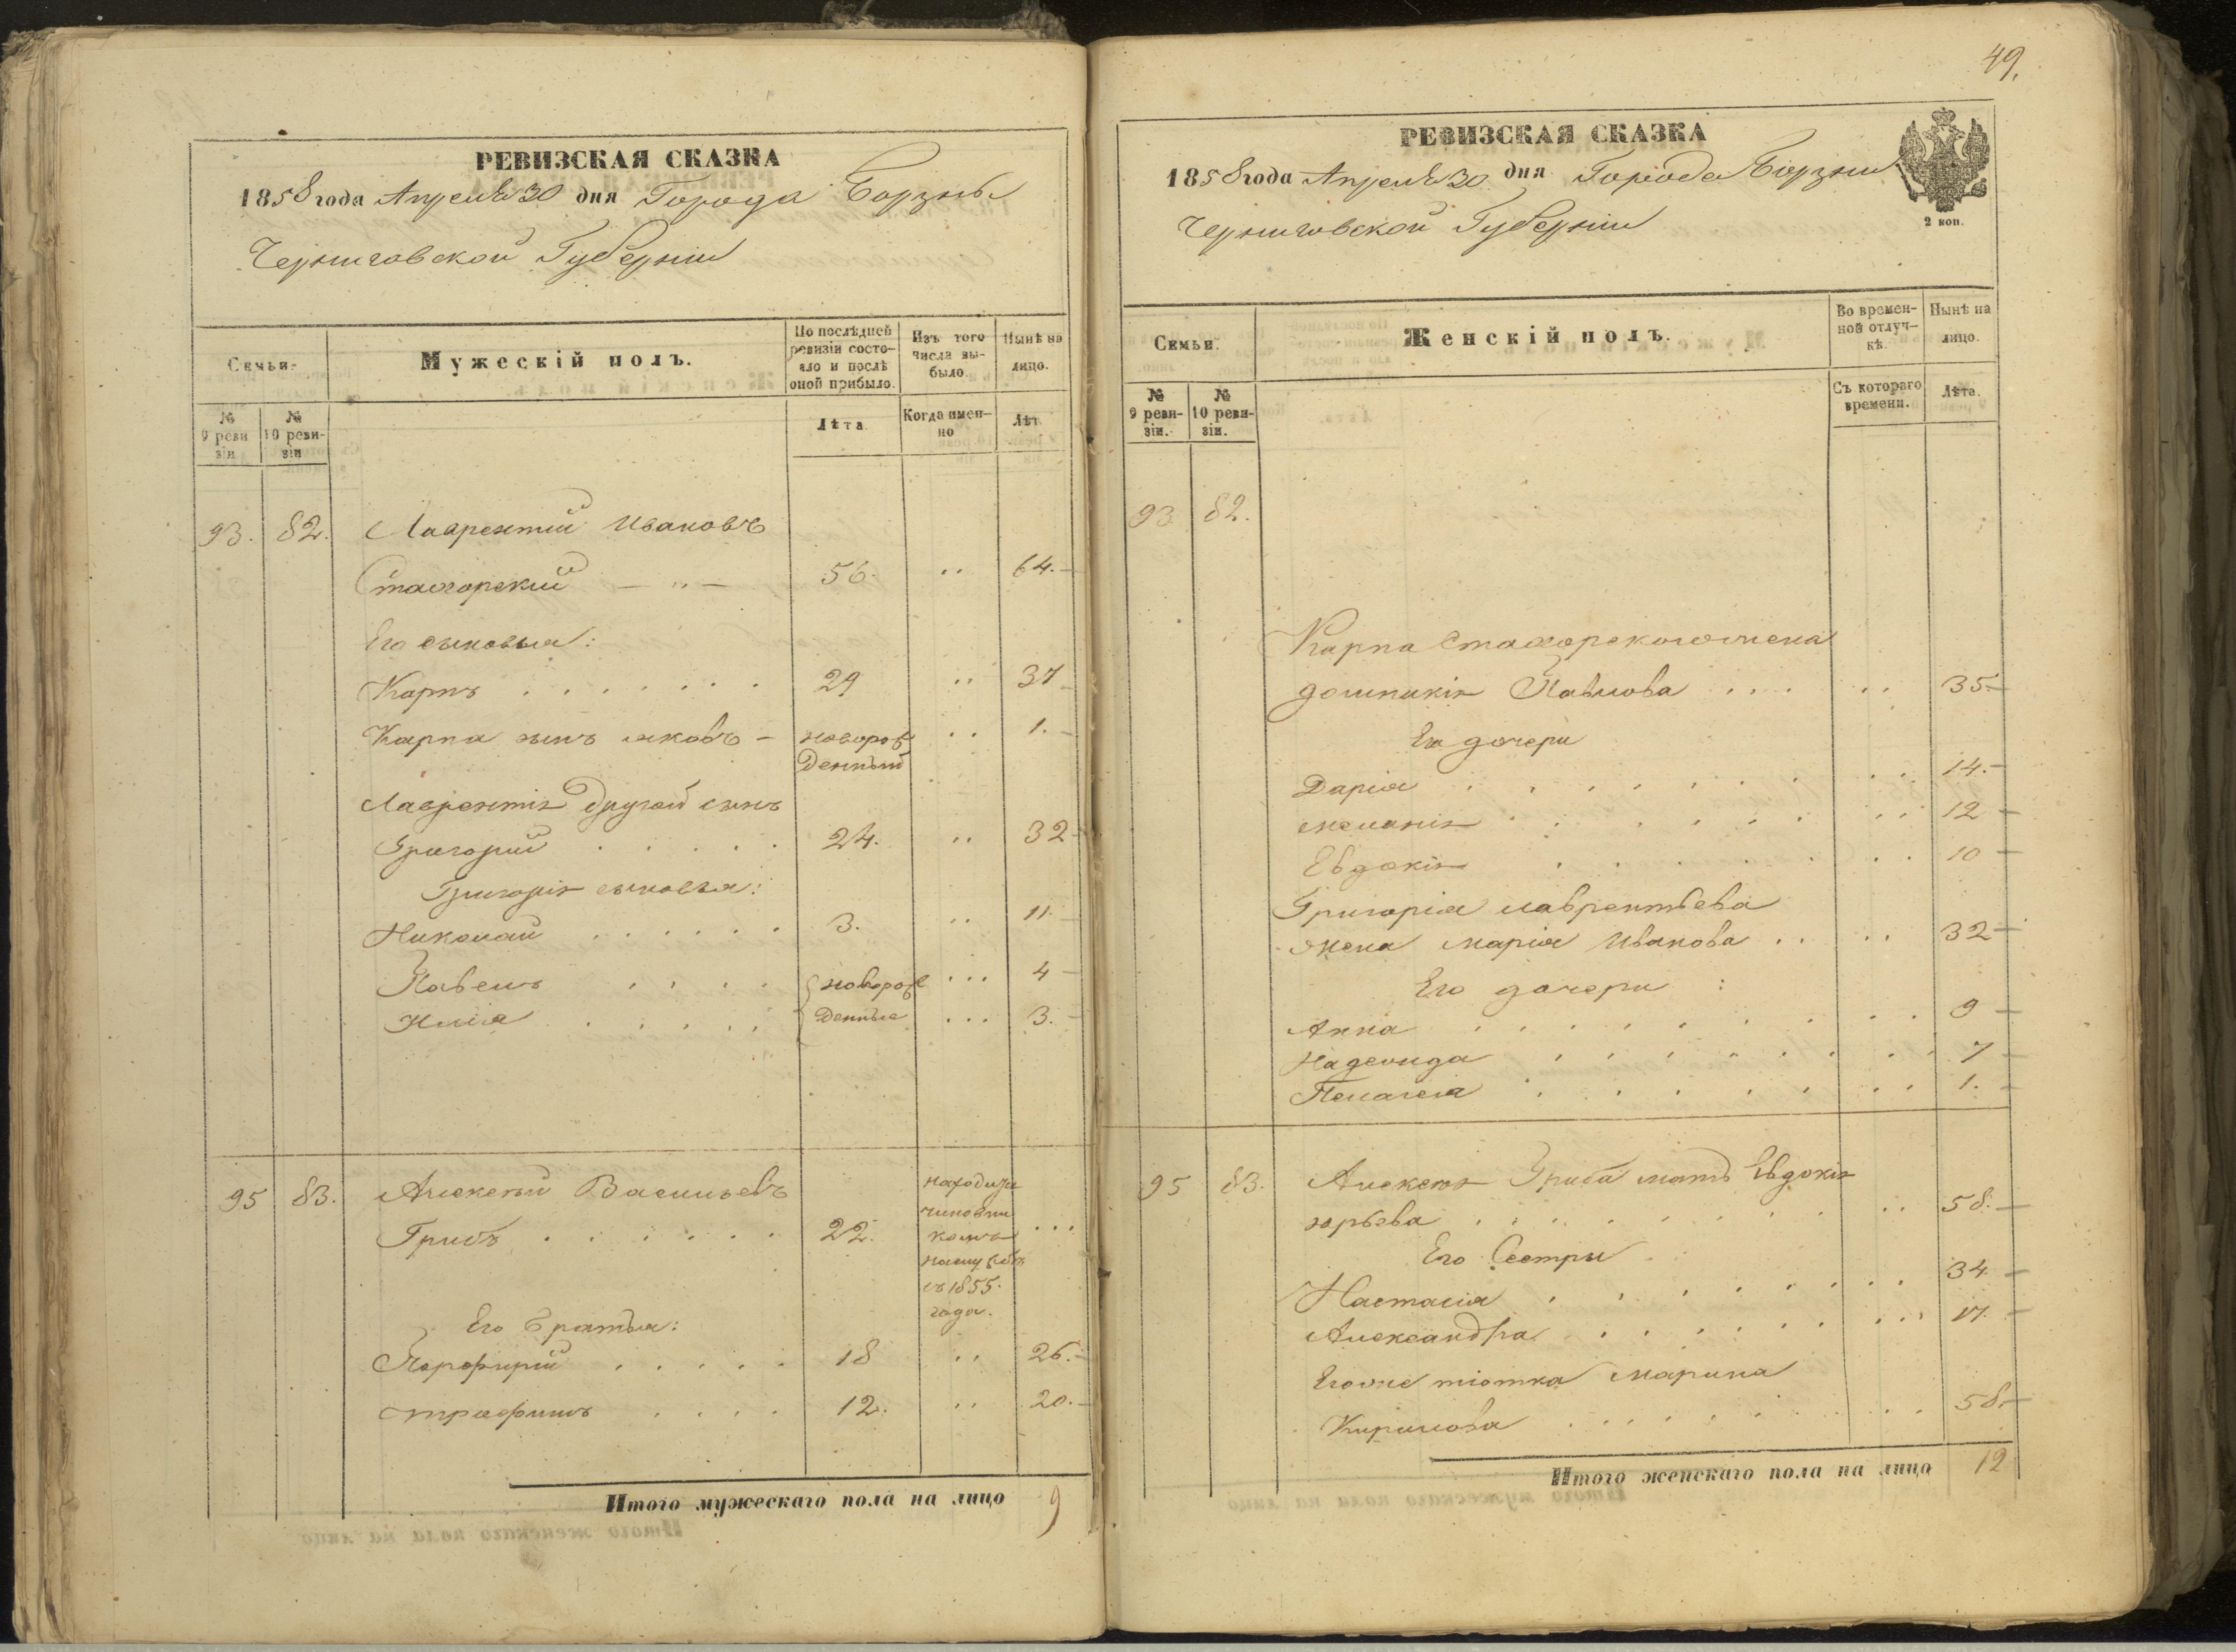 РЕВИЗСКАЯ СКАЗКА
1858 года Апреля 30 дня Города Борзны
Черниговской Губерніи
Семьи.
Мужескій полъ.
По послѣдней ревизіи состояло и послѣ оной прибыло.
Изъ того числа выбыло.
Нынѣ на лицо.
№ 9 ревизіи
№ 10 ревизіи
Лѣта
Когда именно
Лѣт
93. 82. Лаврентий Ивановъ
Стахорский — „ — 56. „ 64.
Его сыновья:
Карпъ 29 „ 37
Карпа сынъ яковъ – новорожденный „ 1.
Лаврентія другой сынъ
Григорий 24. „ 32
Григорія сыновья:
Николай 3. „ 11.
Павелъ новорожденные 4
Илия 3.
95 83. Алексей Васильевъ
Грибъ 22. с 1855. года.
Его братья:
Порфирий 18 „ 26.
трофимъ 12. „ 20.
Итого мужескаго пола на лицо 9
49.
РЕВИЗСКАЯ СКАЗКА
1858 года Апреля 30 дня Города Борзны
Черниговской Губерніи
2 коп.
Семьи.
Женскій полъ.
Во временной отлучкѣ.
Нынѣ на лицо.
№ 9 ревизіи.
№ 10 ревизіи.
Съ котораго времени.
Лѣта.
93 82.
Карпа Стахорского жена
домникія Павлова 35.
Его дочери
Дарія 14.
меланія 12
Евдокія 10
Григорія лаврентьева
жена марія Иванова 32
Его дочери :
Анна 9
Надежда 7
Пелагея 1.
95 83. Алексея Гриба мать Евдокія
юрьева 58.
Его Сестры
Настасія 34.
Александра 17.
Егоже тіотка Марина
Кирилова 58.
Итого женскаго пола на лицо 12